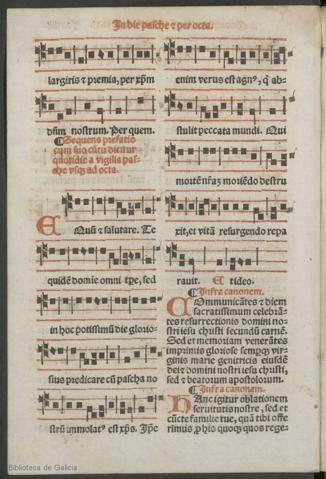 In die pasche ⁊ per octa.
largiris ⁊ premia, per xp̄m
dn̄m nostrum. Per quem.
¶ Sequens prefatio
cum suo cātu dicitur
quotidie a vigilia pas-
che vsq̄ ad octa.
EQuū ⁊ salutare. Te
quidē domīe omni tp̄e, sed
in hoc potissimū die glorio-
sius predicare cū pascha no
strū īmolatꝰ est xp̄s. Ip̄e
enim verus est agnꝰ, q̄ ab-
stulit peccata mundi. Qui
mortē nr̄aȝ moriēdo destru
xit, et vitā resurgendo repa
rauit. Et ideo.
¶ Infra canonem.
COmmunicātes ⁊ diem
sacratissimum celebrā-
tes resurrectionis domini nos
tri iesu christi secundū carnē.
Sed et memoriam venerātes
imprimis gloriose sempqꝫ vir-
ginis marie genetricis eiusdē
dei ⁊ domini nostri iesu christi,
sed ⁊ beatorum apostolorum.
¶ Infra canonem.
HAnc igitur oblationem
seruitutis nostre, sed et
cūcte familie tue, quā tibi offe
rimus p̄ his quoqꝫ quos rege-
Biblioteca de Galicia